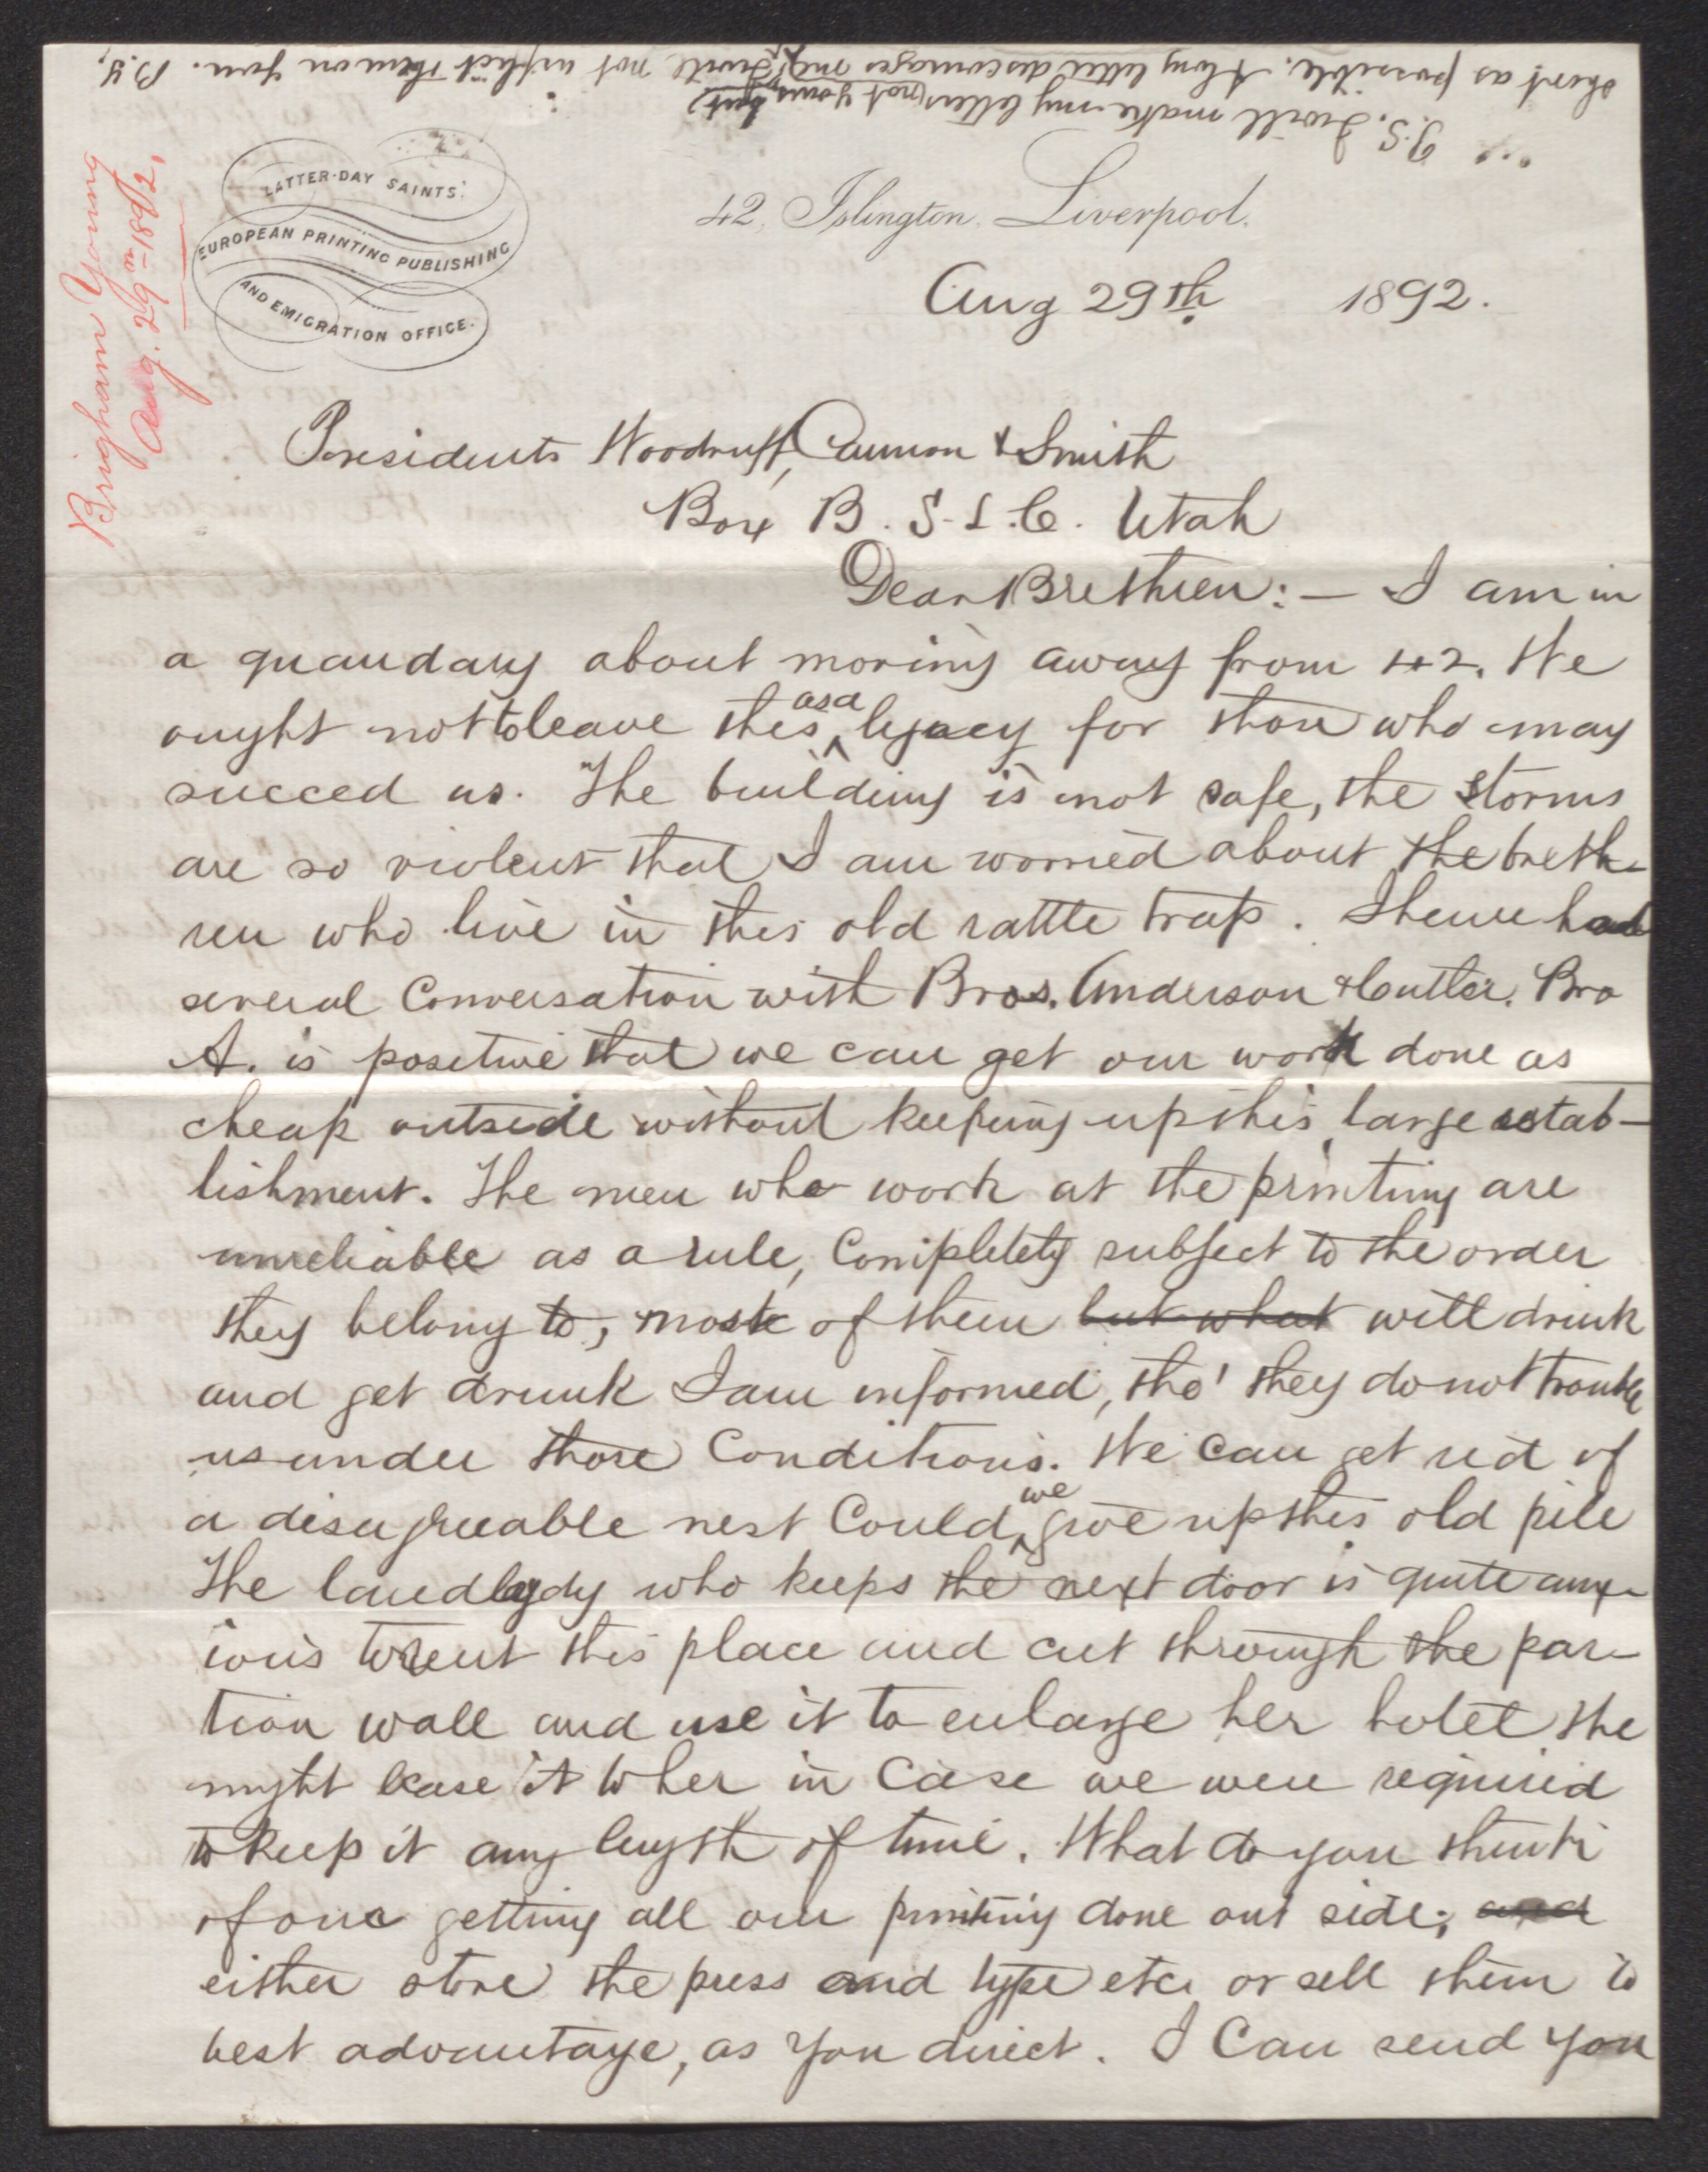 P.S. I will make my letters (not yours but
short as possible. A long letter discourages me) I will not inflict them on you. B.Y.
Brigham Young
Aug. 29th 1892,
LATTER-DAY SAINTS'
EUROPEAN PRINTING PUBLISHING
AND EMIGRATION OFFICE.
42, Islington. Liverpool.
Aug 29th. 1892.
Presidents Woodruff, Cannon & Smith
Box B. S.L.C. Utah
Dear Brethren: — I am in
a quandary about moving away from 42. We
ought not to leave this as a legacy for those who may
succeed us. The building is not safe, the storms
are so violent that I am worried about the breth-
ren who live in this old rattle trap. I have had
several Conversation with Bros. Anderson & Cutler. Bro
A. is positive that we can get our work done as
cheap outside without keeping up this large estab-
lishment. The men who work at the printing are
unreliable as a rule, Completely subject to the order
they belong to, most of them but what will drink
and get drunk I am informed, tho' they do not trouble
us under those Conditions. We can get rid of
a disagreeable nest Could we give up this old pile
The landlady who keeps the next door is quite anx-
ious to rent this place and cut through the par-
tion wall and use it to enlarge her hotel, the
might lease it to her in Case we were required
to keep it any length of time. What do you think
of our getting all our printing done out side; and
either store the press and type etc. or sell them to
best advantage, as you direct. I Can send you